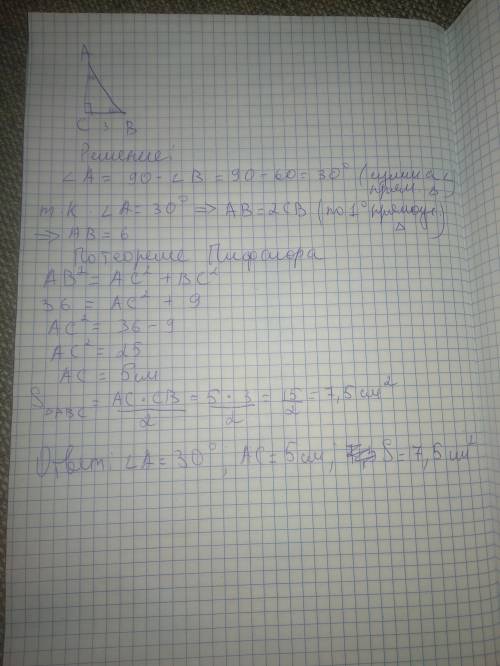 A
C 3 B
Решение:
∠A = 90 - ∠B = 90 - 60 = 30° (сумма ∠ прям. △)
т.к ∠A = 30° => AB = 2CB (по 1° прямоуг △)
=> AB = 6
По теореме Пифагора
AB² = AC² + BC²
36 = AC² + 9
AC² = 36 - 9
AC² = 25
AC = 5 см
S△ABC = AC · CB / 2 = 5 · 3 / 2 = 15 / 2 = 7,5 см²
Ответ: ∠A = 30°, AC = 5 см; S = 7,5 см²